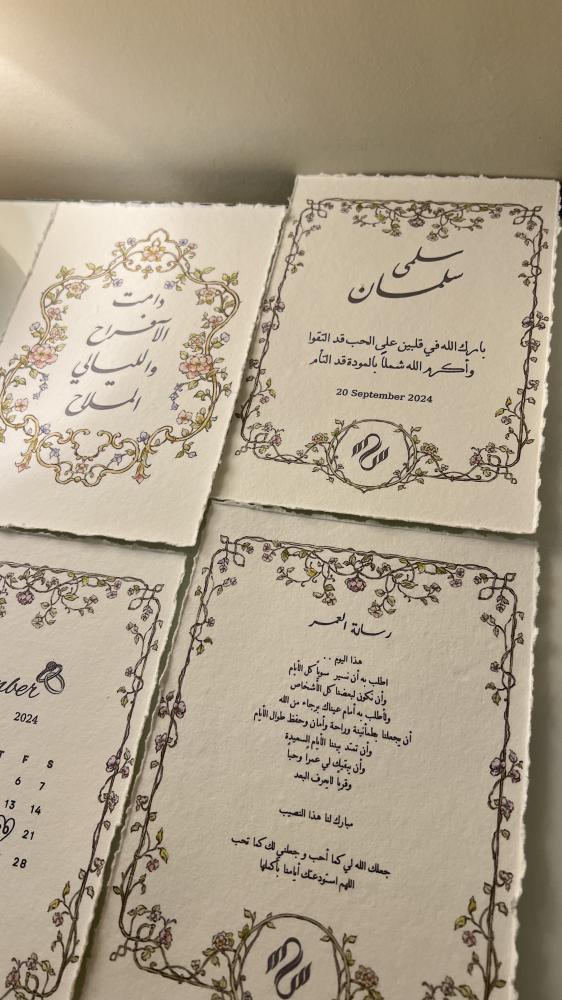 دامت
الأفراح
والليالي
الملاح
سلمى
سلمان
بارك الله في قلبين على الحب قد التقوا
وأكرم الله شملاً بالمودة قد التأم
20 September 2024
mber
2024
T F S
6 7
13 14
21
28
رسالة العمر
هذا اليوم ..
اطلب به أن نسير سوياً كل الأيام
وأن نكون لبعضنا كل الأشخاص
ولأطلب به أمام عيناك برجاء من الله
أن يجعلنا بطمأنينة وراحة وأمان وحفظ طوال الأيام
وأن تمتد بيننا الأيام السعيدة
وأن يبقيك لي عمرا وحبا
وقربا لايعرف البعد
مبارك لنا هذا النصيب
جعلك الله لي كما أحب و جعلني لك كما تحب
اللهم استودعتك أيامنا بأكملها